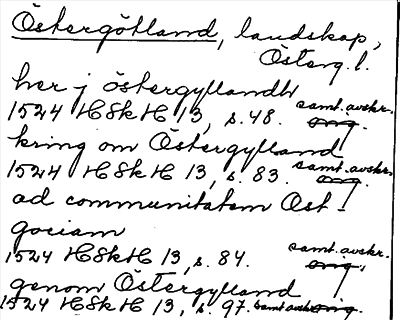 Östergötland, landskap,
Österg. l.
her j östergyllandh
1524 HSkH 13, s. 48. samt. avskr. orig.
kring om Östergylland
1524 HSkH 13, s. 83. samt. avskr. orig.
ad communitatem Ost-
gociam
1524 HSkH 13, s. 84. samt. avskr. orig.
genom Östergylland
1524 HSkH 13, s. 97. samt. avskr. orig.